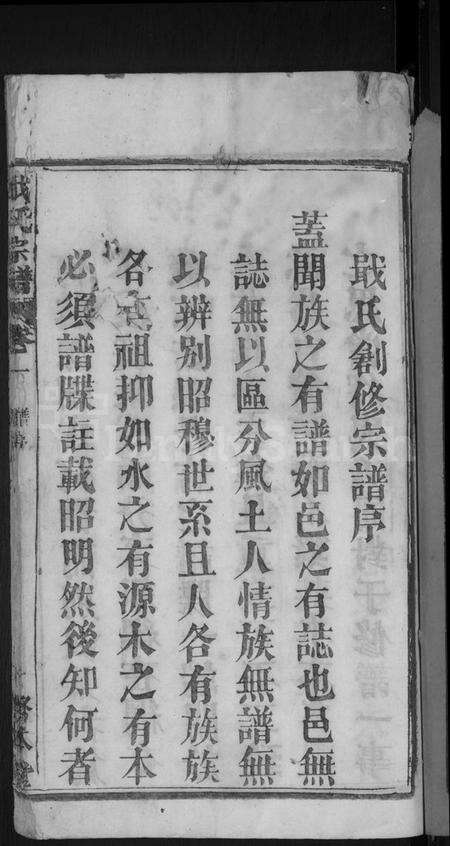 戢氏創修宗譜序
蓋聞族之有譜如邑之有誌也邑無
誌無以區分風土人情族無譜無
以辨別昭穆世系且人各有族族
各有祖抑如水之有源木之有本
必須譜牒註載昭明然後知何者
氏宗譜 卷一